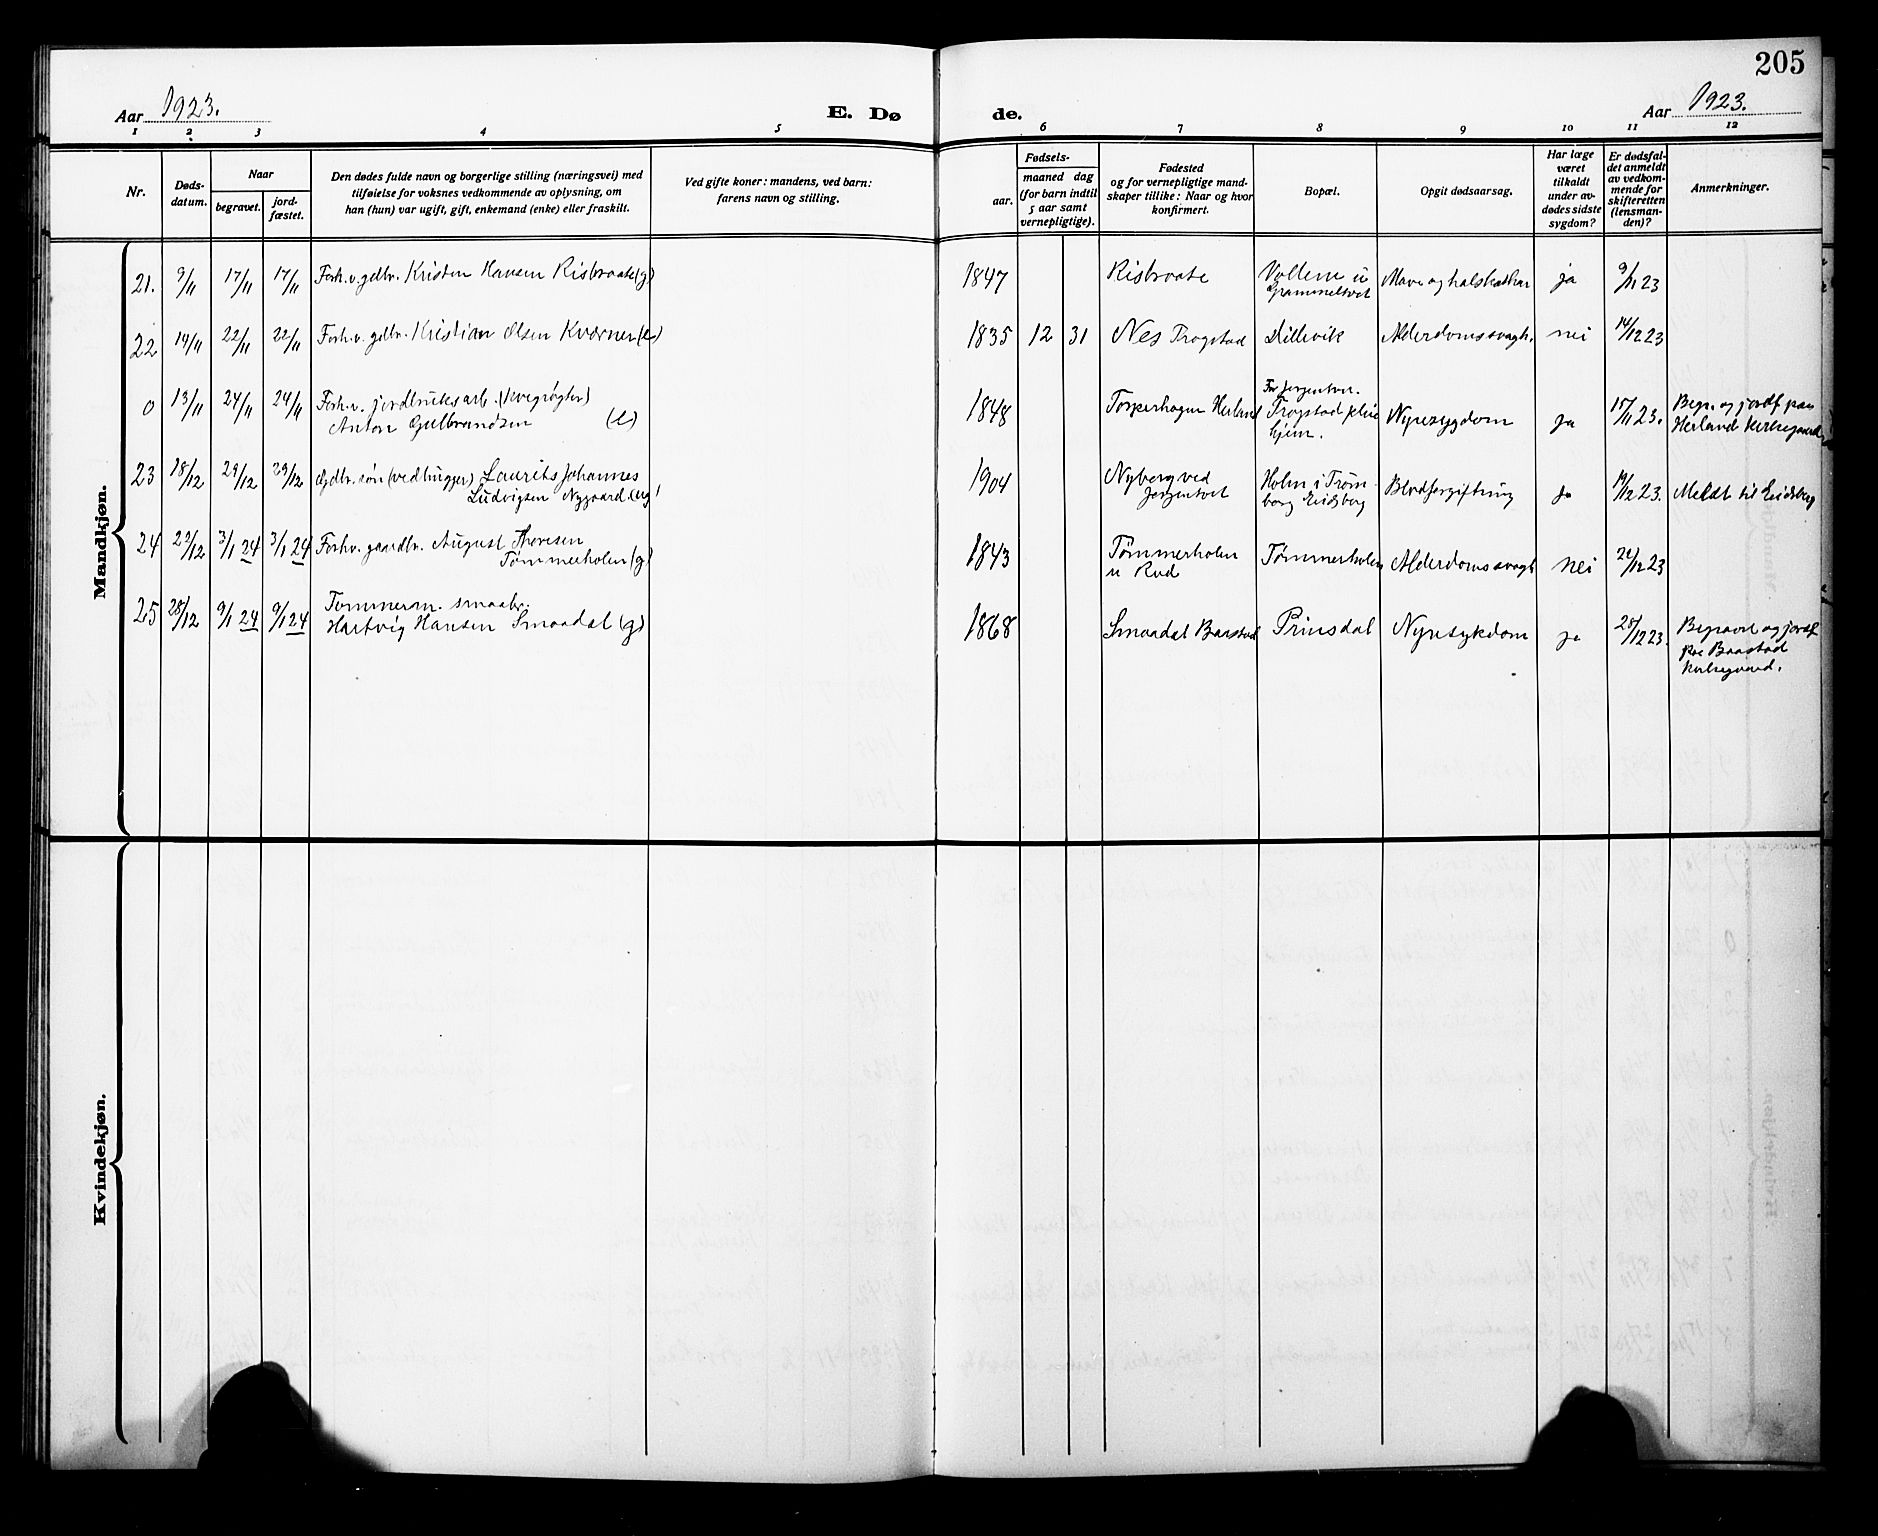 205
Aar 1923.
E. Dø
de.
Aar 1923.
1 2 3 4 5 6 7 8 9 10 11 12
Nr.
Døds-
datum.
Naar
begravet.
jord-
fæstet.
Den dødes fulde navn og borgerlige stilling (næringsvei) med
tilføielse for voksnes vedkommende av oplysning, om
han (hun) var ugift, gift, enkemand (enke) eller fraskilt.
Ved gifte koner: mandens, ved barn:
farens navn og stilling.
Fødsels-
aar.
maaned dag
(for barn indtil
5 aar samt
vernepligtige).
Fødested
og for vernepligtige mand-
skaper tillike: Naar og hvor
konfirmert.
Bopæl.
Opgit dødsaarsag.
Har læge
været
tilkaldt
under av-
dødes sidste
sygdom?
Er dødsfal-
det anmeldt
av vedkom-
mende for
skifteretten
(lensman-
den)?
Anmerkninger.
Mandkjøn.
21. 9/11 17/11 17/11 Forh.v. gdbr. Kristen Hansen Risbraate (g)
1847 Risbraate Vollene u
Grammeltvet
Mave og halskathar ja 9/11 23
22 14/11 22/11 22/11 Forh.v. gdbr. Kristian Olsen Kværner (e)
1835 12 31 Nes Trogstad Dillevik Alderdomssvagh. nei 14/12 23
0 13/11 24/11 24/11 Forh.v. jordbruksarb. (kvegrøgter)
Anton Gulbrandsen (e)
1848 Torperhogen Herland
Trogstad pleie
hjem.
Nyresygdom ja 15/11 23. Begr. og jordf paa
Herland kirkegaard
23 18/12 29/12 29/12 Gdbr. søn (vedhugger) Laurits Johannes
Ludvigsen Nygaard (ug)
1904 Nyborg ved
Jørgentvet
Holm i Trøm-
borg Eidsberg
Blodforgiftning ja 19/12 23. Meldt til Eidsberg
24 22/12 3/1 24 3/1 24 Forhv. gaardbr. August Thoresen
Tømmerholen (g)
1843 Tømmerholen
u Rud
Tømmerholen Alderdomssvagh nei 22/12 23
25 28/12 9/1 24 9/1 24 Tømmerm. smaabr.
Hartvig Hansen Smaadal (g)
1868 Smaadal Baastad Prinsdal Nyresykdom ja 28/12 23. Begravet og jordf
paa Baastad
kirkegaard.
Kvindekjøn.